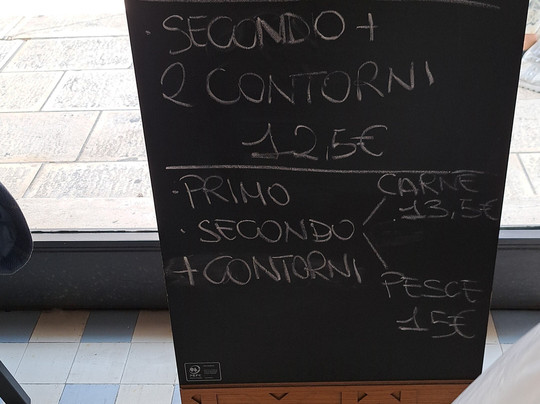 · SECONDO +
2 CONTORNI
12,5€
· PRIMO
· SECONDO
+ CONTORNI
CARNE
13,5€
PESCE
15€